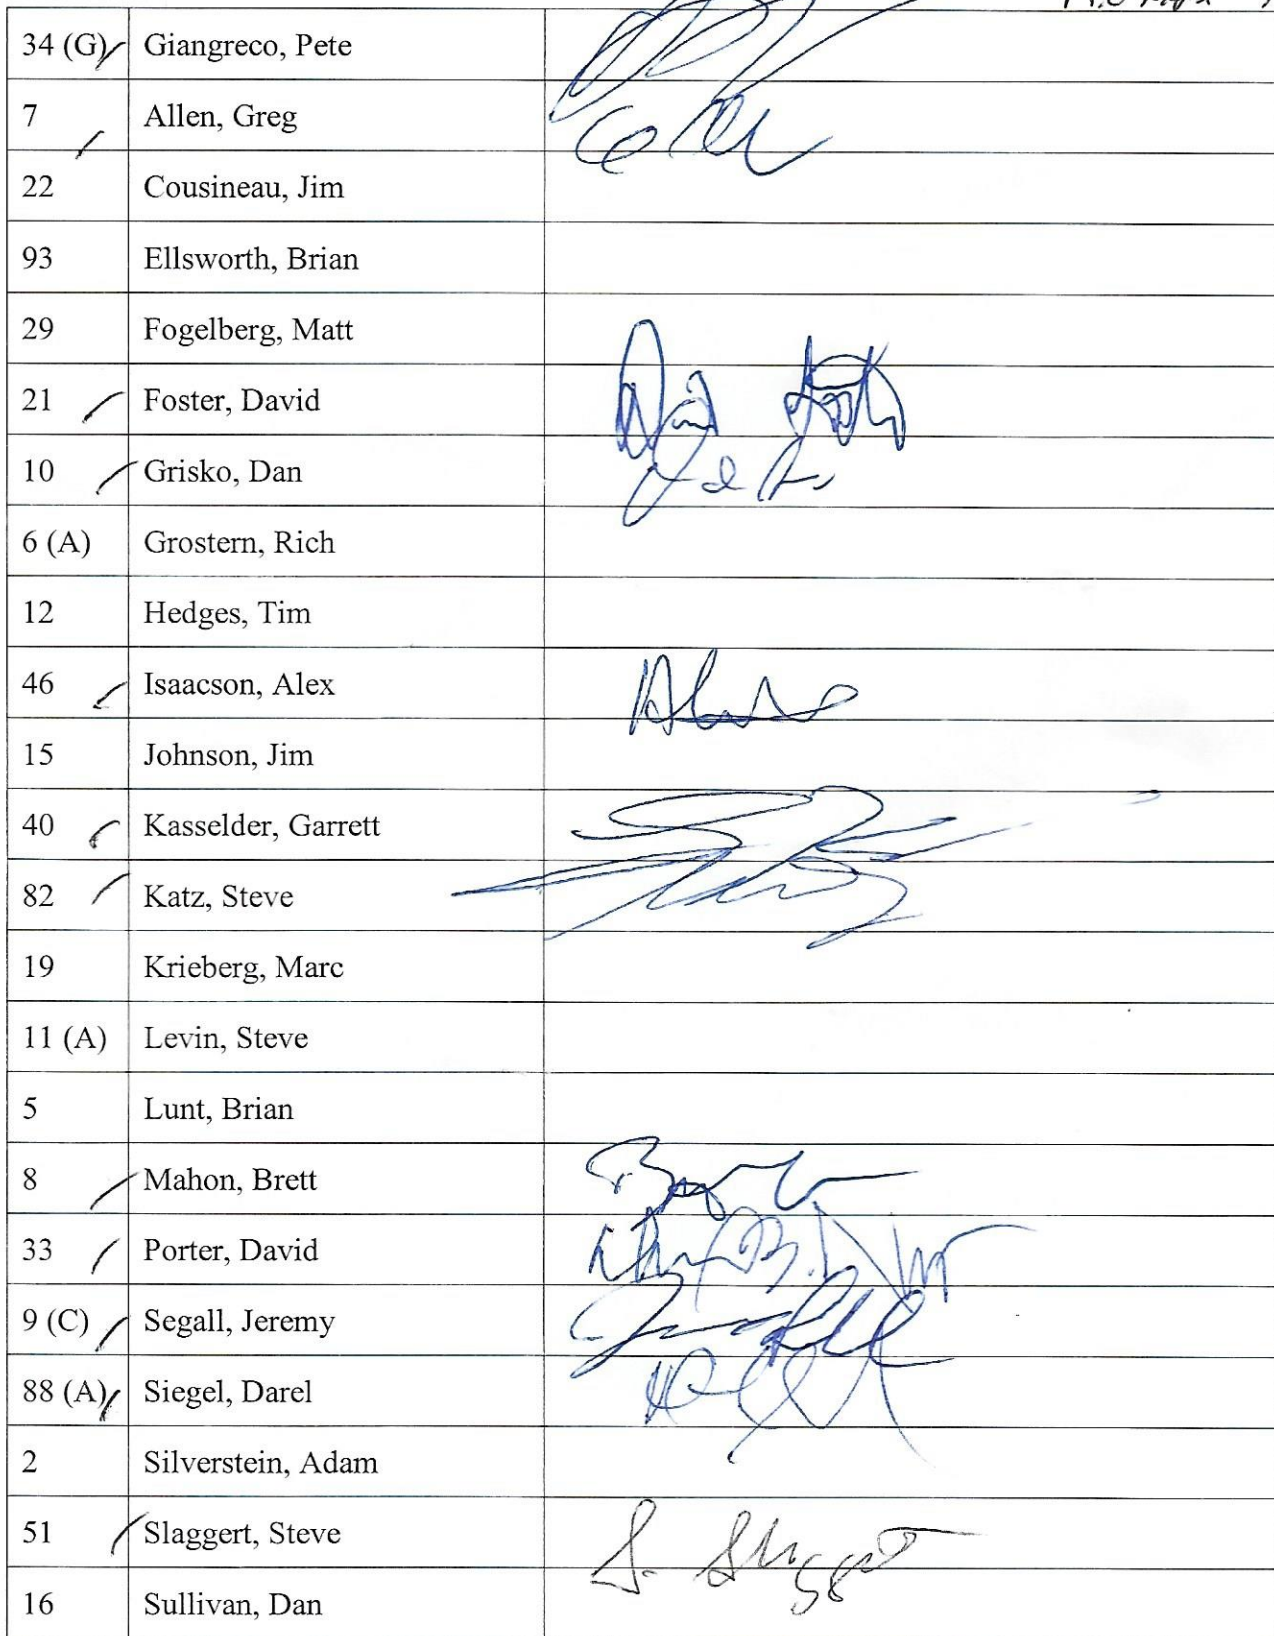 34 (G) Giangreco, Pete
7 Allen, Greg
22 Cousineau, Jim
93 Ellsworth, Brian
29 Fogelberg, Matt
21 Foster, David
10 Grisko, Dan
6 (A) Grostern, Rich
12 Hedges, Tim
46 Isaacson, Alex
15 Johnson, Jim
40 Kasselder, Garrett
82 Katz, Steve
19 Krieberg, Marc
11 (A) Levin, Steve
5 Lunt, Brian
8 Mahon, Brett
33 Porter, David
9 (C) Segall, Jeremy
88 (A) Siegel, Darel
2 Silverstein, Adam
51 Slaggert, Steve S. Slaggert
16 Sullivan, Dan